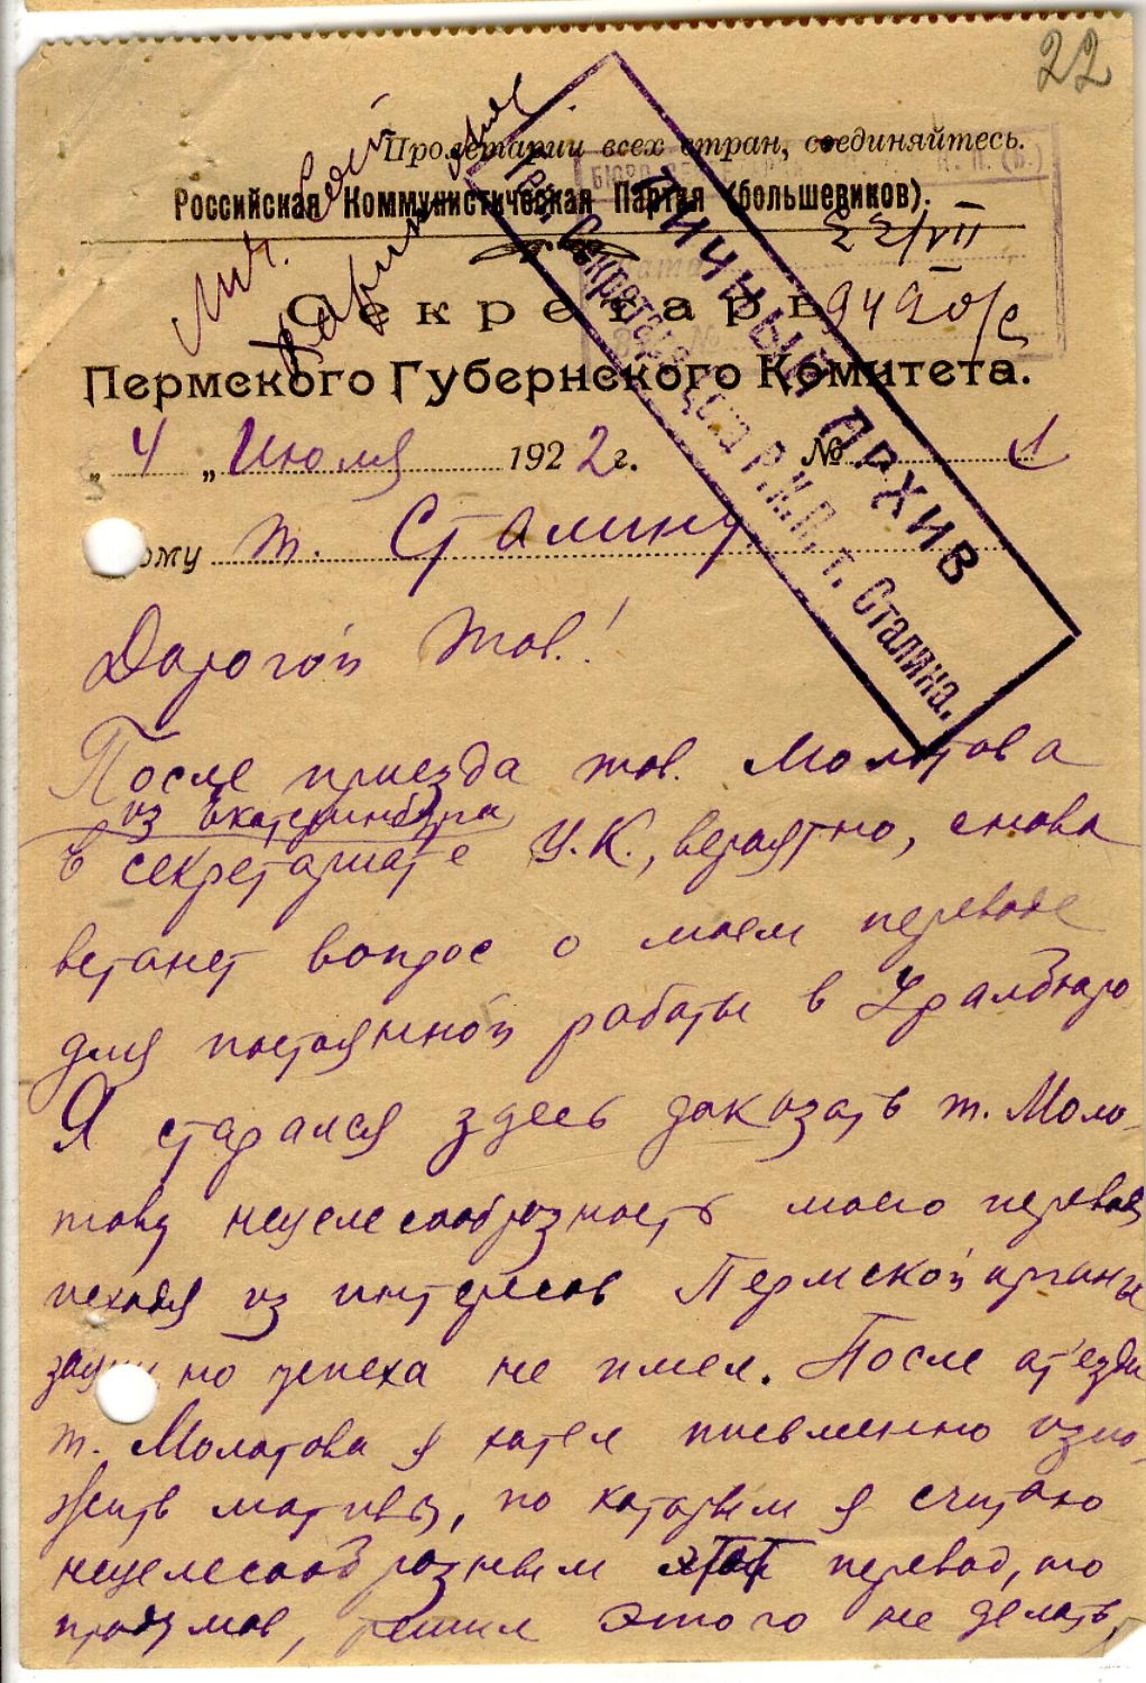 22
Пролетарии всех стран, соединяйтесь.
Российская Коммунистическая Партия (большевиков).
22/VII
Секретарь
9490/с
Пермского Губернского Комитета.
„ 4 „ Июля 1922 г. № 1
ому т. Сталину
ЛИЧНЫЙ АРХИВ
Ген. Секретаря ЦСКА Р.К.П. т. Сталина.
Дорогой тов.!
После приезда тов. Молотова
из Екатеринбурга
в секретариате Ц.К., вероятно, снова
встанет вопрос о моем переводе
для постоянной работы в Уралбюро
Я старался здесь доказать т. Моло-
тову нецелесообразность моего перевода
исходя из интересов Пермской органи
зации но успеха не имел. После отъезда
т. Молотова я хотел письменно изло-
жить мотивы, по которым я считаю
нецелесообразным этот перевод, но
продумав, решил этого не делать,